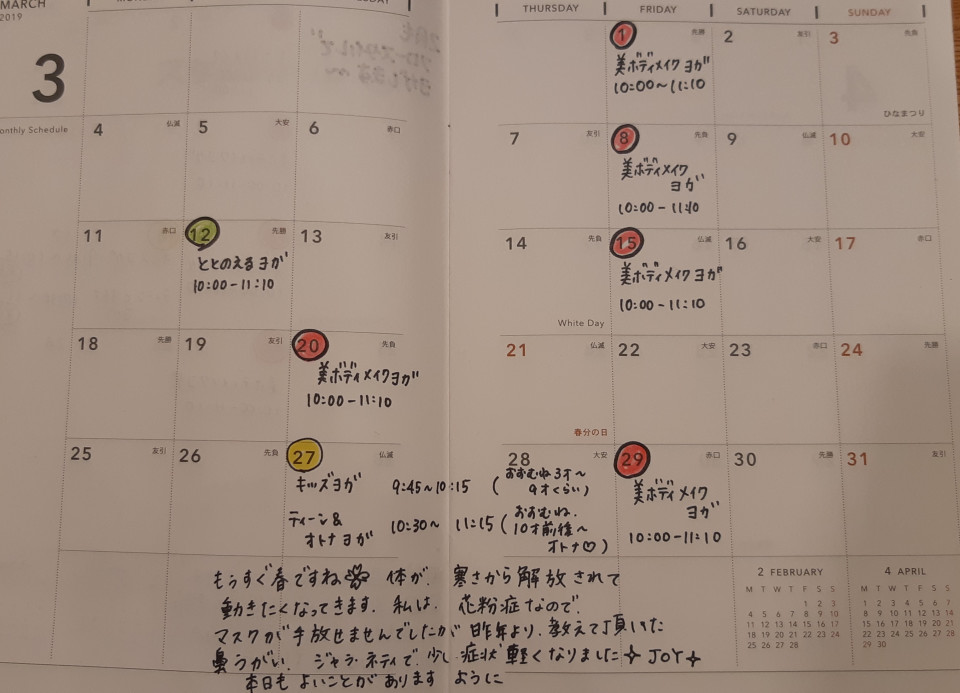 MARCH
2019
3
THURSDAY FRIDAY SATURDAY SUNDAY
1 先勝 2 友引 3 先負
美ボディメイクヨガ
10:00〜11:10
ひなまつり
onthly Schedule
4 仏滅 5 大安 6 赤口
7 友引 8 先負 9 仏滅 10 大安
美ボディメイク
ヨガ
10:00-11:10
11 赤口 12 先勝 13 友引
ととのえるヨガ
10:00-11:10
14 先負 15 仏滅 16 大安 17 赤口
美ボディメイクヨガ
10:00-11:10
White Day
18 先勝 19 友引 20 先負
美ボディメイクヨガ
10:00-11:10
21 仏滅 22 大安 23 赤口 24 先勝
春分の日
25 友引 26 先負 27 仏滅
キッズヨガ 9:45〜10:15 (おおむね3才〜
9才くらい)
ティーン&
オトナヨガ 10:30〜11:15 (おおむね.
10才前後〜
オトナ♡)
28 大安 29 赤口 30 先勝 31 友引
美ボディメイク
ヨガ
10:00-11:10
もうすぐ春ですね 体が、寒さから解放されて
動きたくなってきます. 私は、花粉症なので、
マスクが手放せませんでしたが昨年より、教えて頂いた
鼻うがい、ジャラ・ネティで、少し症状軽くなりました✧JOY✧
本日も よいことがあります ように
2 FEBRUARY
M T W T F S S
1 2 3
4 5 6 7 8 9 10
11 12 13 14 15 16 17
18 19 20 21 22 23 24
25 26 27 28
4 APRIL
M T W T F S S
1 2 3 4 5 6 7
8 9 10 11 12 13 14
15 16 17 18 19 20 21
22 23 24 25 26 27 28
29 30